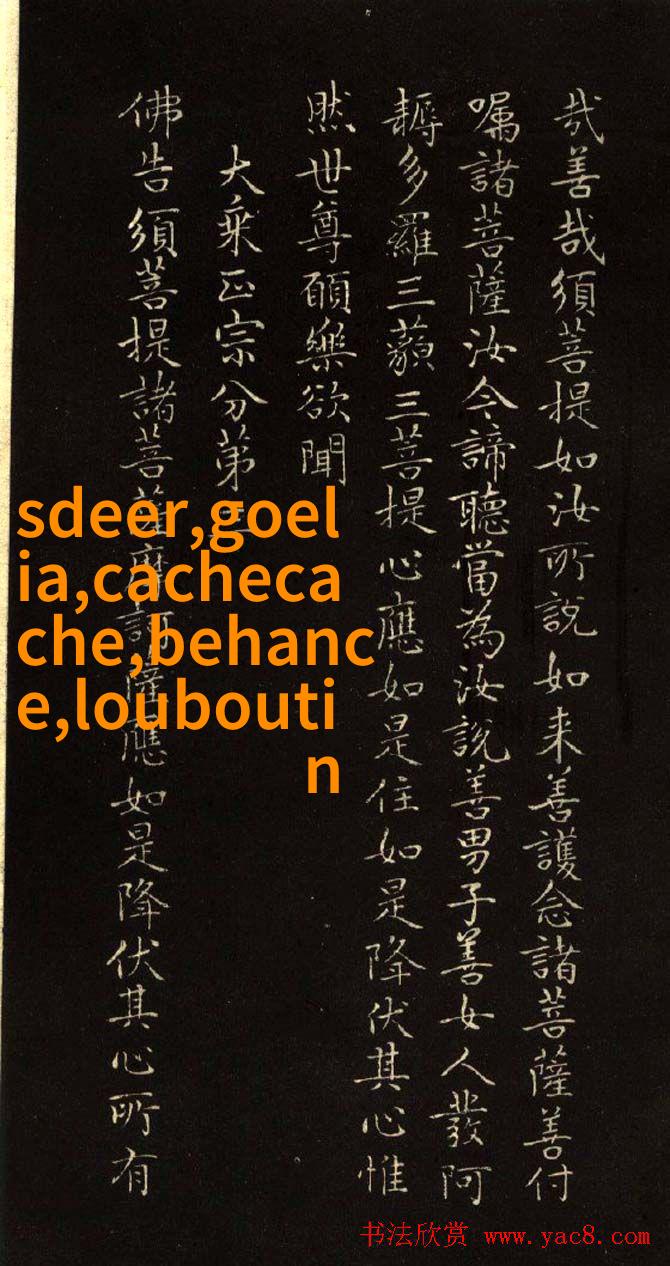 哉善哉須菩提如汝所說如来善護念諸菩薩善付
嘱諸菩薩汝今諦聽當為汝說善男子善女人發阿
耨多羅三藐三菩提心應如是住如是降伏其心惟
然世尊願樂欲聞
大乘正宗分第三
佛告須菩提諸菩薩摩訶薩應如是降伏其心所有
sdeer,goel
ia,cacheca
che,behanc
e,loubouti
n
书法欣赏 www.yac8.com